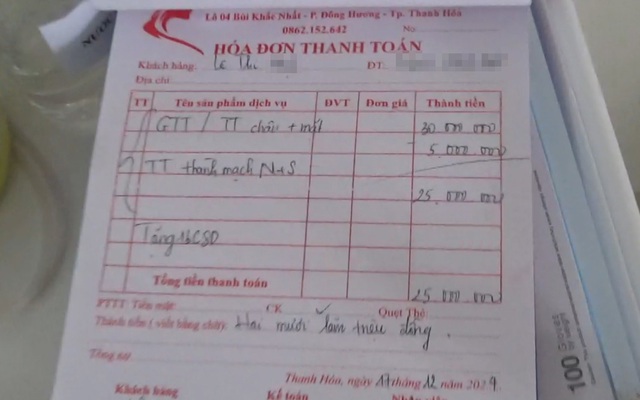 Lô 04 Bùi Khắc Nhất - P. Đông Hương - Tp. Thanh Hóa
0862.152.642 No:
HÓA ĐƠN THANH TOÁN
Khách hàng: Lê Thu ĐT:
Địa chỉ:
TT Tên sản phẩm dịch vụ ĐVT Đơn giá Thành tiền
GTT / TT chân + mắt 30 000 000
5 000 000
TT thanh mạch N+S
25 000 000
Tặng CSD
Tổng tiền thanh toán 25 000 000
PTTT: Tiền mặt CK ✓ Quẹt Thẻ
Thành tiền (viết bằng chữ): Hai mươi lăm triệu đồng.
Tổng nợ
Thanh Hóa, ngày 17 tháng 12 năm 2024
Khách hàng Kế toán
100